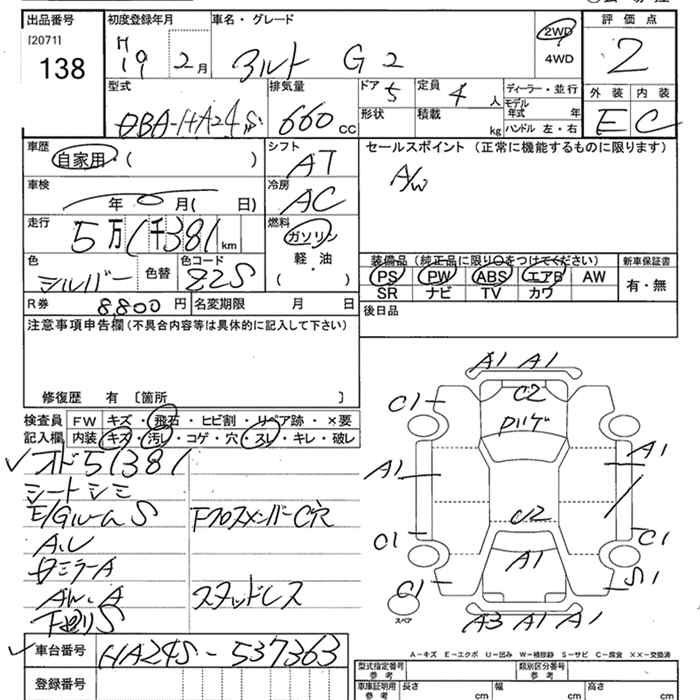 出品番号 初度登録年月 車名・グレード 評価点
[2071]
138 H19 2月 アルト G2 2WD 4WD 2
型式 排気量 ドア 5 定員 4人 ディーラー・並行 外装 内装
DBA-HA24S 660 CC 形状 積載 kg モデル年式 年 ハンドル 左・右 E C
車歴 シフト セールスポイント (正常に機能するものに限ります)
自家用・( ) AT A/W
車検 冷房
年 月( 日) AC
走行 燃料
5万1千381km ガソリン
色 色コード 軽油 装備品 (純正品に限り○をつけてください) 新車保証書
シルバー 色替 Z2S ( ・ ) PS PW ABS エアB AW 有・無
SR ナビ TV カワ
R券 8,800円 名変期限 月 日 後日品
注意事項申告欄 (不具合内容等は具体的に記入して下さい)
修復歴 有 〔箇所 〕
検査員 FW キズ・飛石・ヒビ割・リペア跡・×要
記入欄 内装 キズ・汚レ・コゲ・穴・スレ・キレ・破レ
オド51381
シートシミ
E/GルームS 下クロスメンバーC穴
A.U
ミラーA
スタッドレス
下廻りS
A1 A1
C1 C2
A1 A1
C1 U2 C1
A1
C1 S1
A3 A1 A1
スペア
A-キズ E-エクボ U-凹み W-補修跡 S-サビ C-腐食 ××-交換済
車台番号 HA24S-537363
登録番号
型式指定番号 参考 類別区分番号 参考
車庫証明用 参考 長さ cm 幅 cm 高さ cm